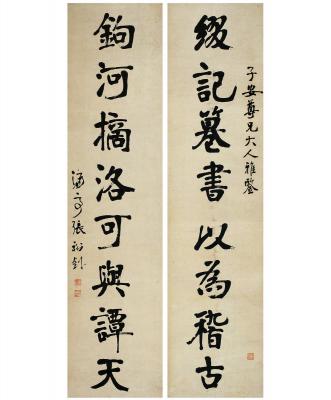 子安尊兄大人雅鑒
綴記纂書以為稽古
鉤河摘洛可與譚天
濂亭張裕釗